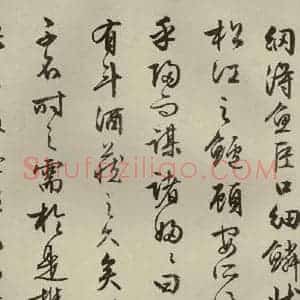 網得魚巨口細鱗狀
松江之鱸顧安所
乎歸而謀諸婦々曰
有斗酒藏之久矣
子不時之需於是攜
Shufaziliao.com